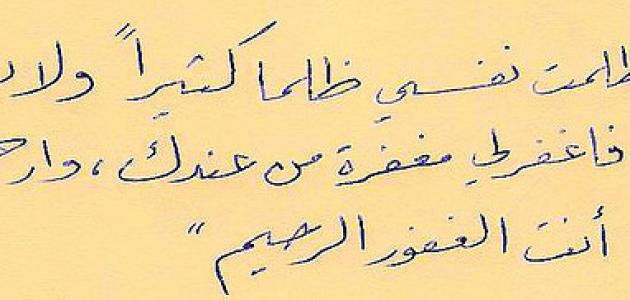 ظلمت نفسي ظلما كثيراً ولا
فاغفر لي مغفرة من عندك، وارح
أنت الغفور الرحيم"